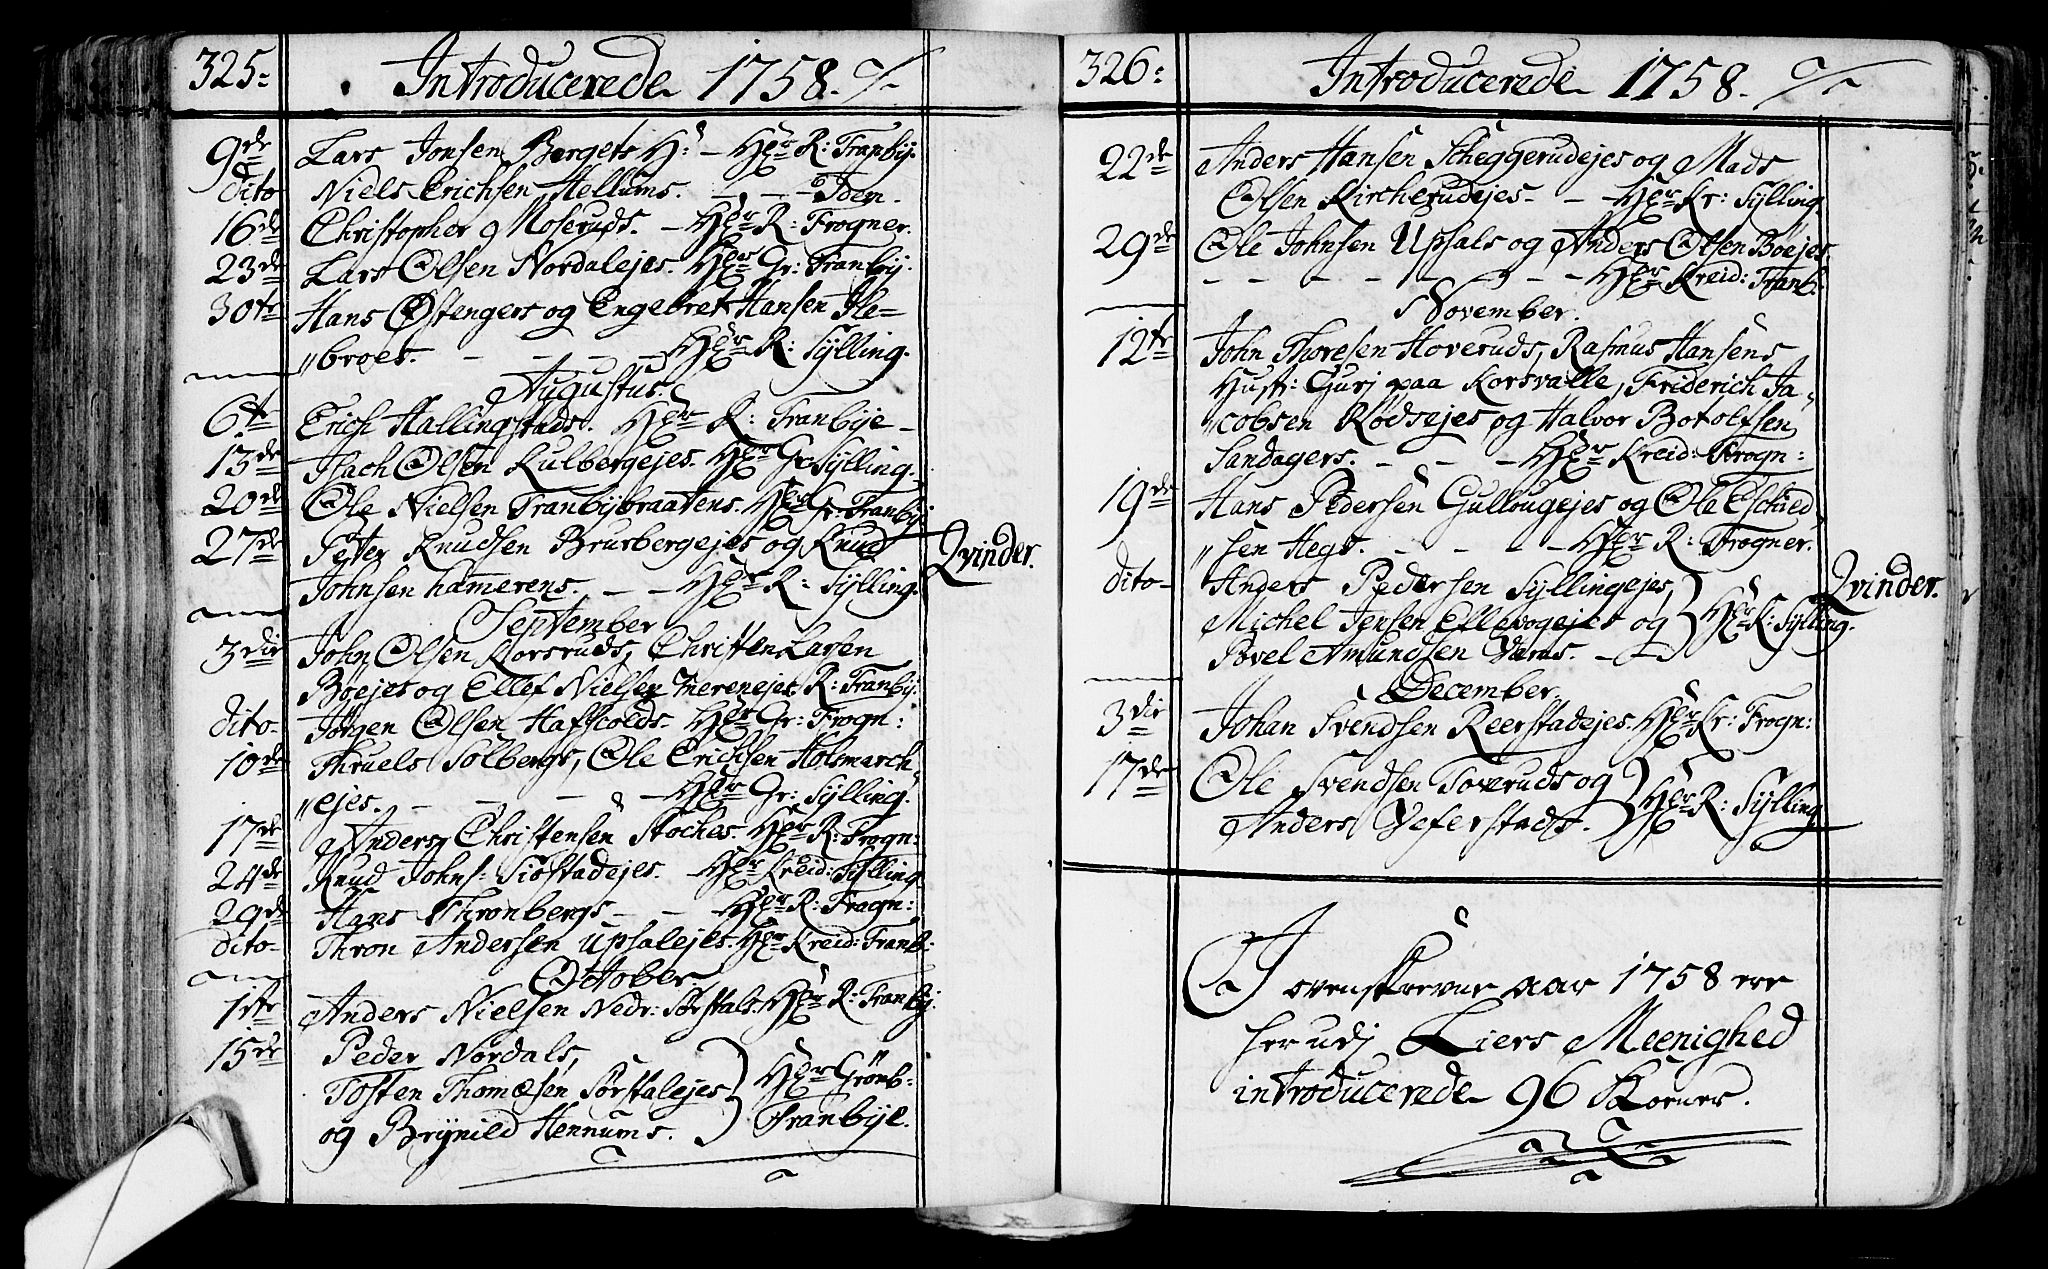 325:
Introducerede 1758.
9de Lars Jonsen Bergets H: - Hr R: Tranby.
dito Niels Erichsen Hellums. - - - Idem.
16de Christopher Moseruds. - Hr R: Frogner.
23de Lars Olsen Nordalejes. Hr Gr: Tranby.
30te Hans Østengers og Engebret Hansen Ile-
"broes. - - - Hr R: Sylling.
Augustus.
6te Erich Hallingstads. Hr R: Tranbije-
13de Isach Olsen Kulbergejes. Hr Gr: Sylling.
20de Ole Nielsen Tranbybraatens. Hr Gr: Tranby.
27de Peter Knudsen Brusbergejes og Knud
Johnsen hamerens. - - Hr R: Sylling.
Qvinder.
September
3die John Olsen Korsruds, Christen Larsen
Bøejes og Ellef Nielsen R: Tranby.
dito- Jørgen Olsen Haffscolds. Hr Gr: Frogn:
10de Thruels Solbergs, Ole Erichsen Holsmarch
"ejes. - - - Hr Gr: Sylling.
17de Anders Christensen Stoches. Hr R: Frogn:
24de Knud Johns: Siøstadejes. Hr Kreid: Sylling.
29de Hans Thronbergs - - Hr R: Frogn:
dito- Thron Andersen Upsalejes. Hr Kreid: Tranb:
October
1ste Anders Nielsen Nedr: Sørstals. Hr R: Tranby.
15de Peder Nordals,
Tosten Thomæsen Sørstalejes Hr Grönb-
og Brynild Hennums. Tranbye.
326:
Introducerede 1758.
22de Anders Hansen Scheggerudejes og Mads
Olsen Kircherudejes- - Hr Kr: Sylling.
29de Ole Johnsen Upsals og Anders Olsen Böejes.
- - - - - - - Hr Kreid: Tranb.
November.
12te John Thoresen Hoveruds, Rasmus Hansens
Hust: Gurj paa Korsvalle, Friderich Ja-
"cobsen Rødsejes og Halvor Botolfsen
Sandagers. - - - Hr Kreid: Frogn:
19de Hans Pedersen Gullougejes og Ole Eschied
"sen Hegs. - - - - Hr R: Frogner.
dito- Anders Pedersen Syllingejes,
Michel Jensen Ellevogejes og Hr R: Sylling.
Povel Amundsen Væras. - -
Qvinder.
December.
3die Johan Svendsen Reerstadejes. Hr Kr: Frogn:
17de Ole Svendsen Toveruds og
Anders Vefferstads. Hr R: Sylling
I ovenskrevne aar 1758 ere
her udj Liers Meenighed
introducerede 96 Koener.